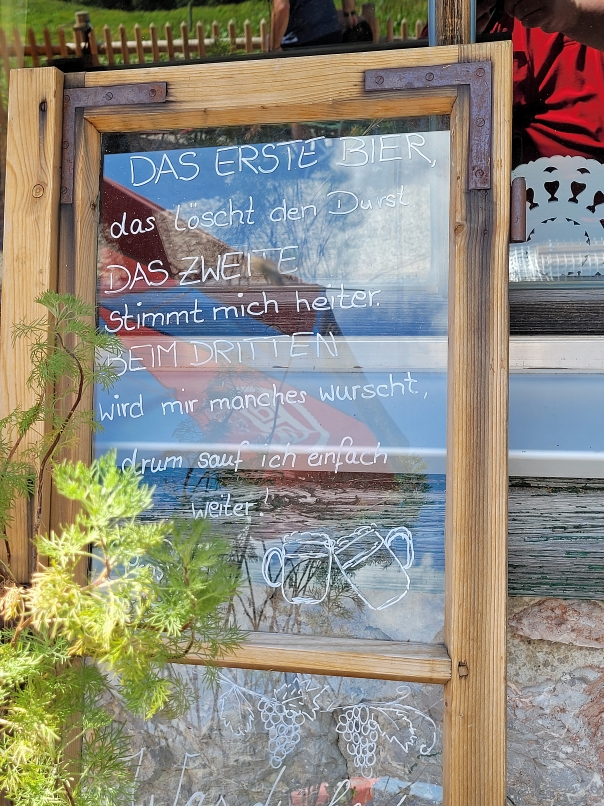 DAS ERSTE BIER,
das löscht den Durst
DAS ZWEITE
stimmt mich heiter.
BEIM DRITTEN
wird mir manches wurscht,
drum sauf ich einfach
weiter!